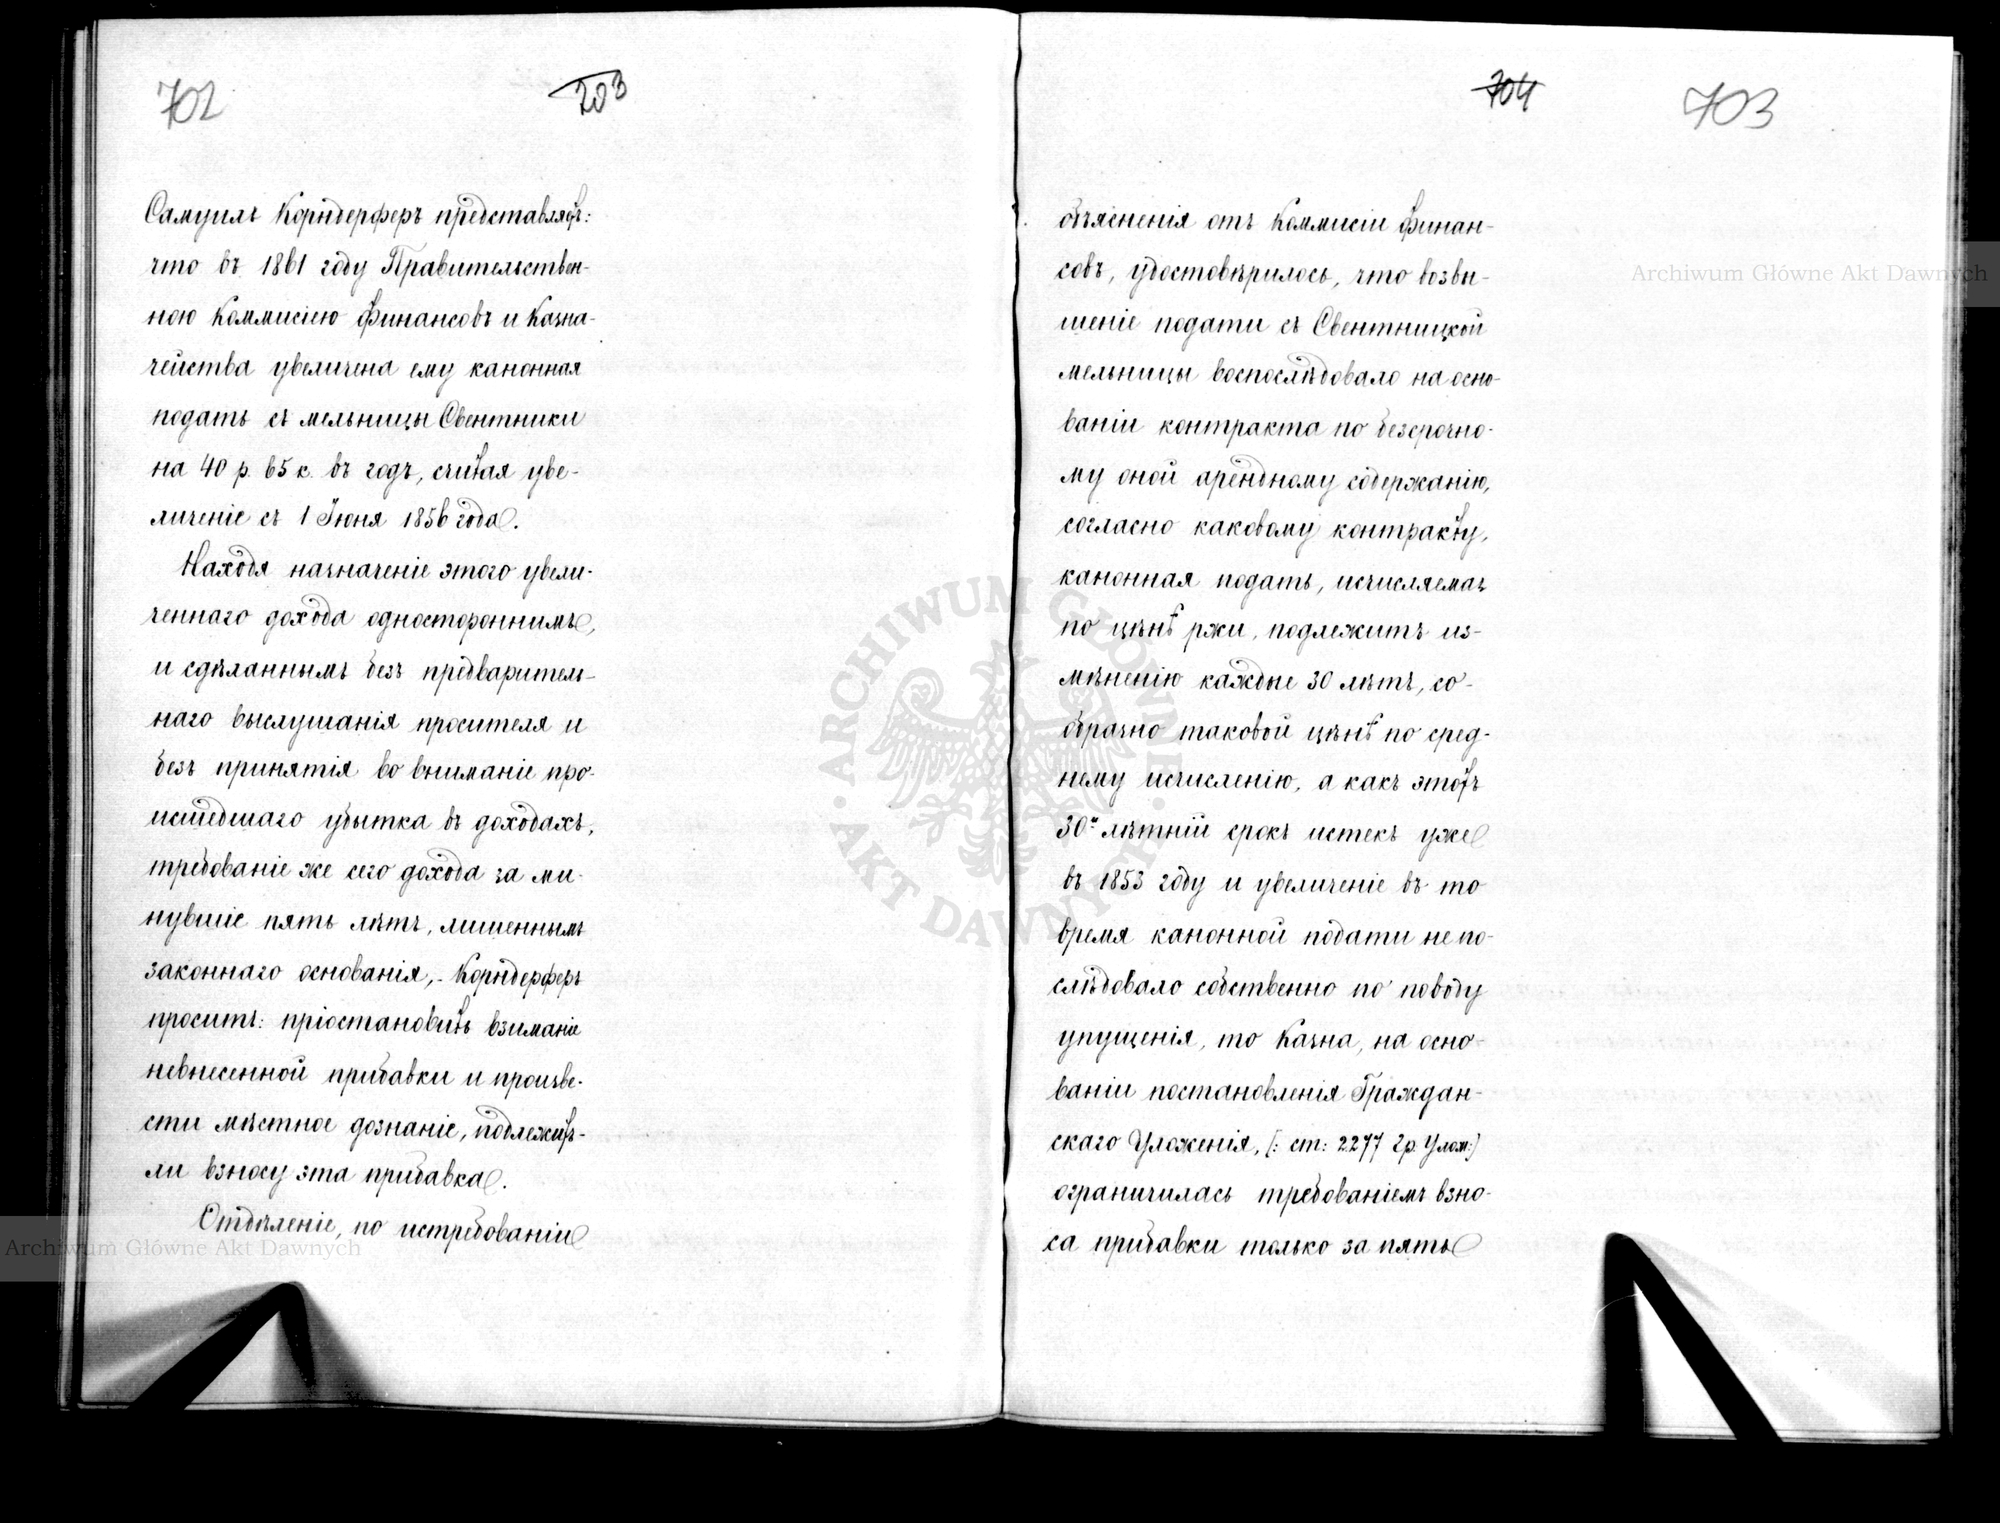 702
203
Самуилъ Корндерферъ представляетъ:
что въ 1861 году Правительствен-
ною Коммисіею Финансовъ и Казна-
чейства увеличена ему канонная
подать съ мельницы Свентники
на 40 р. 65 к. въ годъ, считая уве-
личеніе съ 1 Іюня 1856 года.
Находя назначеніе этого увели-
ченнаго дохода одностороннимъ,
и сдѣланнымъ безъ предваритель-
наго выслушанія просителя и
безъ принятія во вниманіе про-
исшедшаго убытка въ доходахъ,
требованіе же сего дохода за ми-
нувшіе пять лѣтъ, лишеннымъ
законнаго основанія, - Корндерферъ
проситъ: пріостановить взиманіе
невнесенной прибавки и произве-
сти мѣстное дознаніе, подлежитъ-
ли взносу эта прибавка.
Отдѣленіе, по истребованіи
704
703
объясненія отъ Коммисіи Финан-
совъ, удостовѣрилось, что возвы-
шеніе подати съ Свентницкой
мельницы воспослѣдовало на осно-
ваніи контракта по безсрочно-
му оной арендному содержанію,
согласно каковому контракту,
канонная подать, исчисляемая
по цѣнѣ ржи, подлежитъ из-
мѣненію каждые 30 лѣтъ, со-
образно таковой цѣнѣ по сред-
нему исчисленію, а какъ этотъ
30и лѣтній срокъ истекъ уже
въ 1853 году и увеличеніе въ то
время канонной подати не по-
слѣдовало собственно по поводу
упущенія, то Казна, на осно-
ваніи постановленія Граждан-
скаго Уложенія, [: ст: 2277 Гр. Улож:]
ограничилась требованіемъ взно-
са прибавки только за пять
Archiwum Główne Akt Dawnych
Archiwum Główne Akt Dawnych
ARCHIWUM GŁÓWNE · AKT DAWNYCH ·